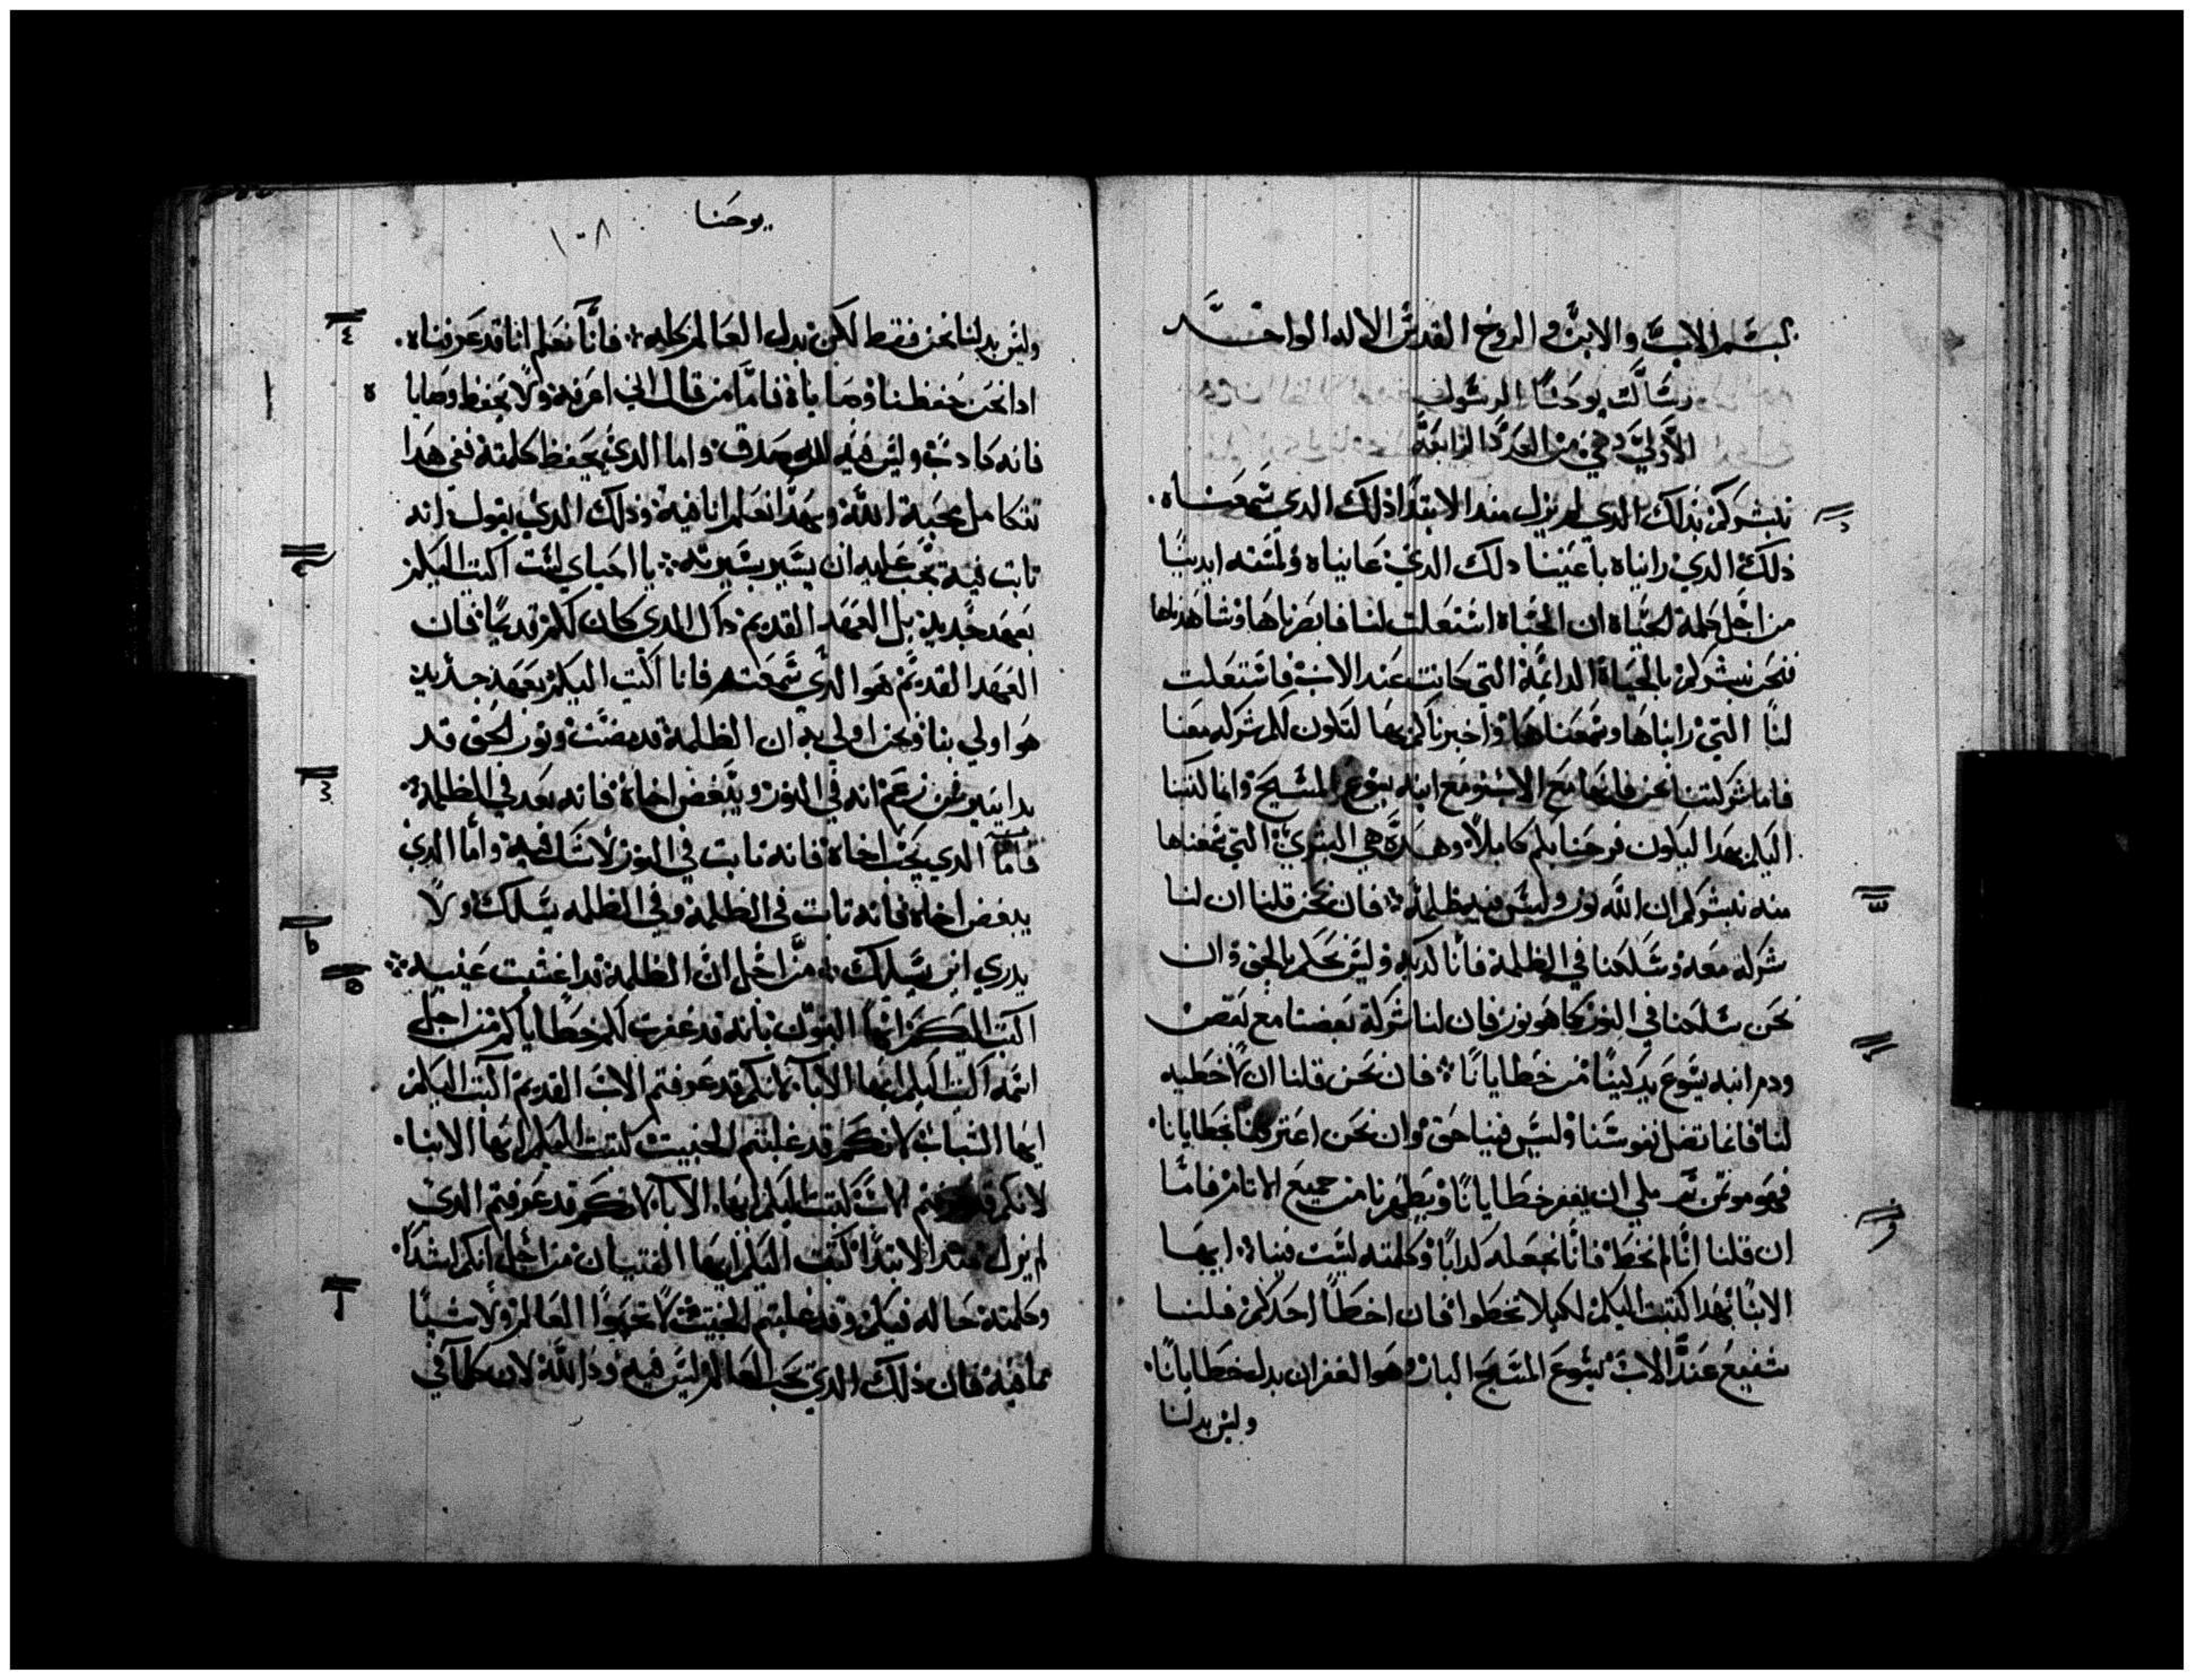 بسم الاب والابن والروح القدس الاله الواحد
رسالة يوحنا الرسول
الاولي وهي من العدد الرابعة
نبشركم بذلك الدي لم يزل مند الابتدا ذلك الدي سمعناه
ذلك الدي رايناه باعيننا دلك الدي عايناه ولمسته ايدينا
من اجل كلمة الحياة ان الحياة استعلت لنا فابصرناها وشاهدناها
فنحن نبشركم بالحياة الدايمة التي كانت عند الاب فاستعلت
لنا التي رايناها وسمعناها واخبرناكم بها لتكون لكم شركه معنا
فاما شركتنا نحن فانها مع الاب ومع ابنه يسوع المسيح وانما كتبنا
اليكم بهدا ليكون فرحنا بكم كاملا وهده هي البشري التي سمعناها
منه نبشركم ان الله نور وليس فيه ظلمة فان نحن قلنا ان لنا
شركة معه وسلكنا في الظلمة فانا كدبه وليس نحكم بالحق وان
نحن سلكنا في النور كما هو نور فان لنا شركة بعضنا مع بعض
ودم ابنه يسوع يدكينا من خطايانا فان نحن قلنا ان لا خطيه
لنا فانما نضل نفوسنا وليس فينا حق وان نحن اعترفنا بخطايانا
فهو مومن بر ملي ان يغفر خطايانا ويطهرنا من جميع الاثام فاما
ان قلنا انا لم نخط فانا نجعله كدابا وكلمته ليست فينا ايها
الابنا بهدا كتبت اليكم لكيلا تخطوا فان اخطا احدكم فلنا
شفيع عند الاب يسوع المسيح البار هو الغفران بدل خطايانا
وليس بدلنا
يوحنا
١٠٨
وليس بدلنا نحن فقط لكن بدل العالم كله فانا نعلم انا قد عرفناه
ادا نحن حفظنا وصاياه فاما من قال اني اعرفه ولا يحفظ وصايا
فانه كادب وليس فيه صدق واما الدي يحفظ كلمته ففي هدا
تتكامل محبة الله وبهدا نعلم انا فيه ودلك الدي يقول انه
ثابت فيه يجب عليه ان يسير بسيرته يا احباي لست اكتب اليكم
بعهد جديد بل العهد القديم داك الدي كان لكم قديما فان
العهد القديم هو الدي سمعتم فانا اكتب اليكم بعهد جديد
هو اولي بنا ونحن اولي به ان الظلمة قد مضت ونور الحق قد
بدا ينير من زعم انه في النور ويبغض اخاه فانه بعد في الظلمة
فاما الدي يحب اخاه فانه ثابت في النور لا شك فيه واما الدي
يبغض اخاه فانه ثابت في الظلمة وفي الظلمه يسلك ولا
يدري اين يسلك من اجل ان الظلمة قد اغشت عينيه
اكتب اليكم ايها البنون بانه قد غفرت لكم خطاياكم من اجل
اسمه اكتب اليكم ايها الابا لانكم قد عرفتم الاب القديم اكتب اليكم
ايها الشباب لانكم قد غلبتم الخبيث كتبت اليكم ايها الابنا
لانكم قد عرفتم الاب كتبت اليكم ايها الابا لانكم قد عرفتم الدي
لم يزل مند الابتدا كتبت اليكم ايها الفتيان من اجل انكم اشدا
وكلمته حاله فيكم وقد غلبتم الخبيث لا تحبوا العالم ولا شيا
مما فيه فان ذلك الدي يحب العالم ليس فيه ود الله لان كلما في